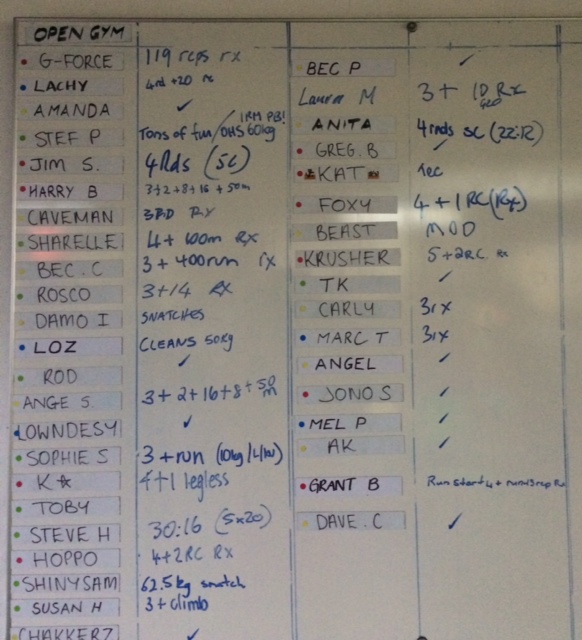 OPEN GYM
G-FORCE 119 reps rx
LACHY 4rd +20 rx
AMANDA ✓
STEF P Tons of fun/OHS 60kg 1RM PB!
JIM S. 4 Rds (SC)
HARRY B 3+2+8+16+50m
CAVEMAN 3RD RX
SHARELLE 4+600m RX
BEC.C 3+400run rx
ROSCO 3+14 RX
DAMO I SNATCHES
LOZ CLEANS 50kg
ROD ✓
ANGE S. 3+2+16+8+50m
LOWNDESY ✓
SOPHIE S 3+run
K☆ 4+1 legless
TOBY
STEVE H 30:16 (5x20)
HOPPO 4+2RC RX
SHINYSAM 62.5kg snatch
SUSAN H 3+climb
CHAKKERZ ✓
BEC P ✓
Lauren M 3+ 10 Rx
ANITA 4rnds sc (22:12)
GREG.B ✓
KAT rec
FOXY 4+1RC (Rx)
BEAST MOD
KRUSHER 5+2RC Rx
TK ✓
CARLY 3rx
MARC T 3rx
ANGEL ✓
JONO S ✓
MEL P ✓
AK ✓
GRANT B Run start 4+ run+13rep Rx
DAVE.C ✓